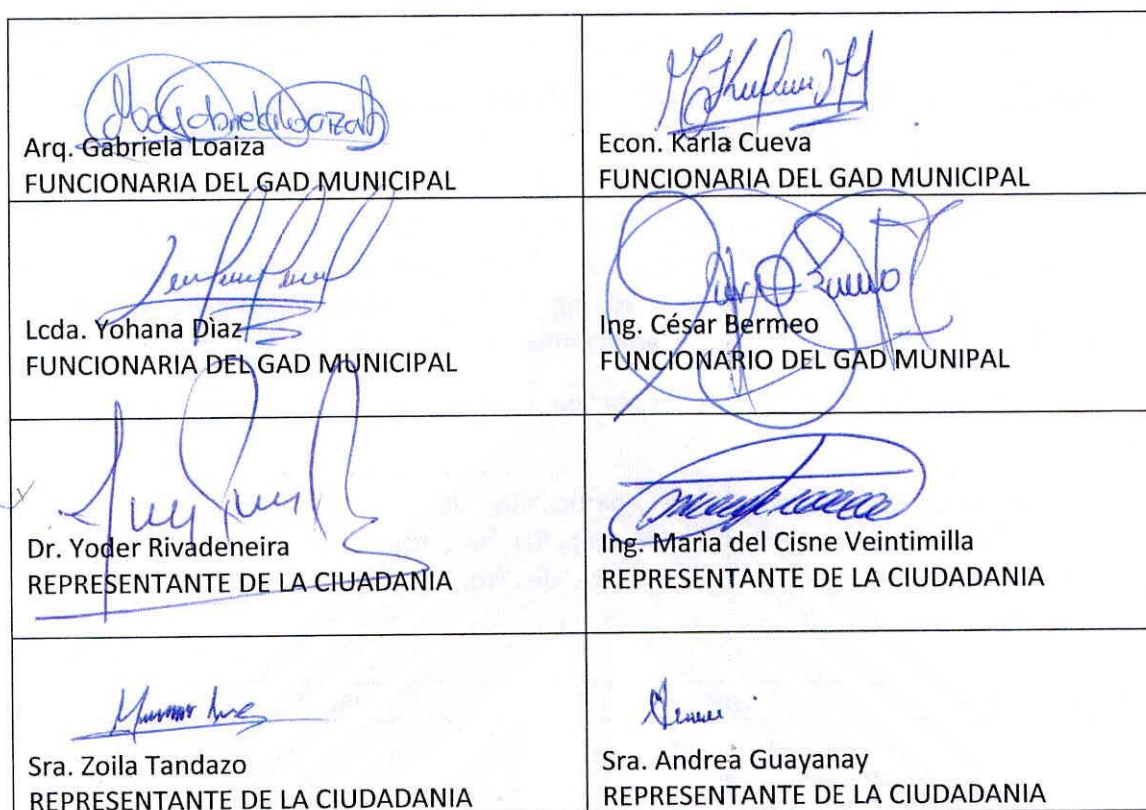 Arq. Gabriela Loaiza
FUNCIONARIA DEL GAD MUNICIPAL
Econ. Karla Cueva
FUNCIONARIA DEL GAD MUNICIPAL
Lcda. Yohana Dìaz
FUNCIONARIA DEL GAD MUNICIPAL
Ing. César Bermeo
FUNCIONARIO DEL GAD MUNIPAL
Dr. Yoder Rivadeneira
REPRESENTANTE DE LA CIUADANIA
Ing. Marìa del Cisne Veintimilla
REPRESENTANTE DE LA CIUDADANIA
Sra. Zoila Tandazo
REPRESENTANTE DE LA CIUDADANIA
Sra. Andrea Guayanay
REPRESENTANTE DE LA CIUDADANIA